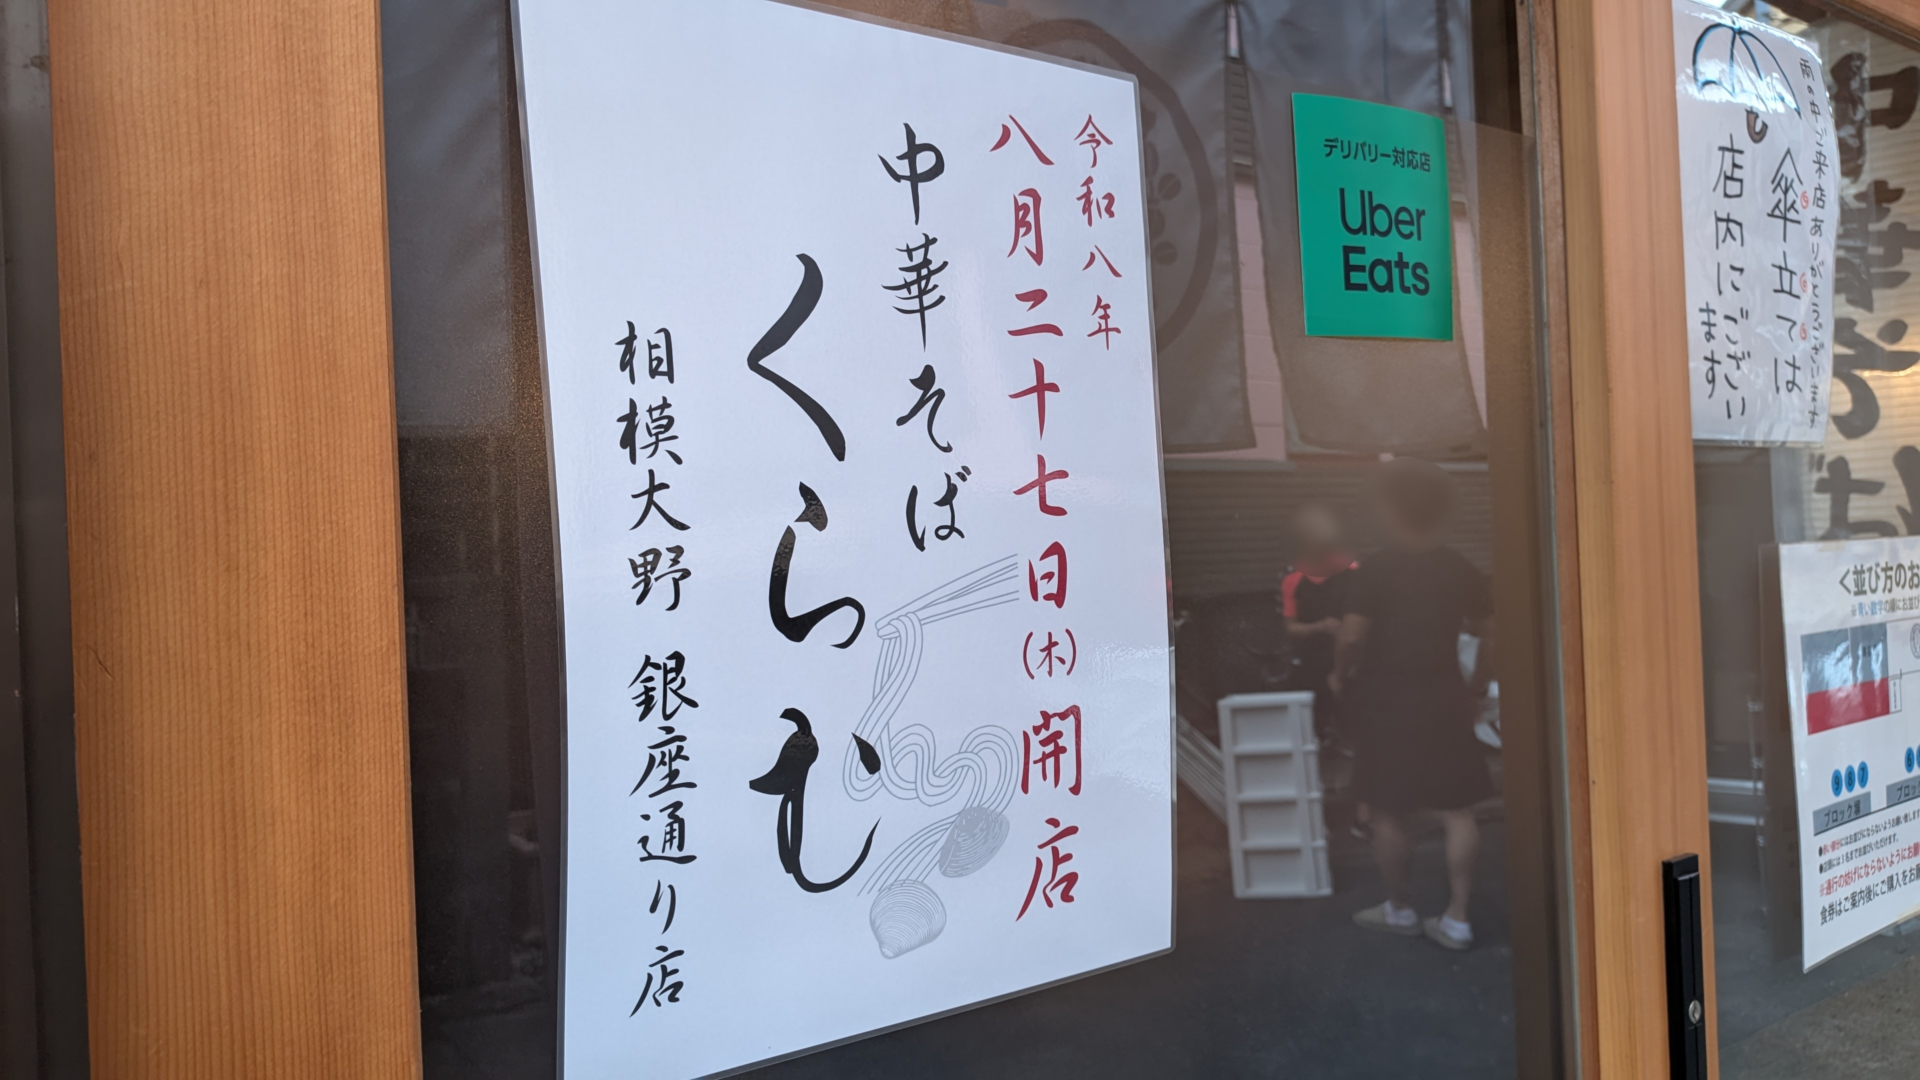 令和八年
八月二十七日(木)開店
中華そば
くらむ
相模大野 銀座通り店
デリバリー対応店
Uber
Eats
雨の中ご来店ありがとうございます
傘立ては
店内にござい
ます
<並び方のお
987
ブロック塀
食券はご案内後にご購入をお